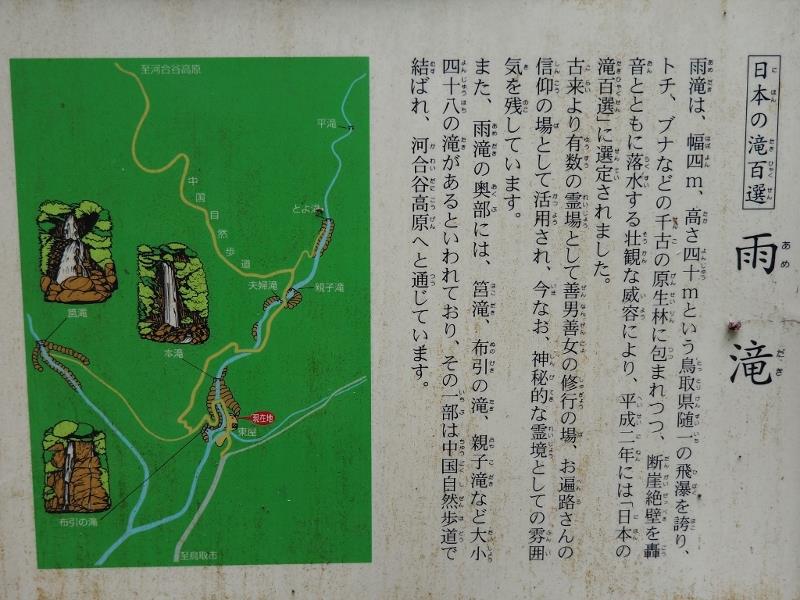 日本の滝百選
雨滝
雨滝は、幅四m、高さ四十mという鳥取県随一の飛瀑を誇り、
トチ、ブナなどの千古の原生林に包まれつつ、断崖絶壁を轟
音とともに落水する壮観な威容により、平成二年には「日本の
滝百選」に選定されました。
古来より有数の霊場として善男善女の修行の場、お遍路さんの
信仰の場として活用され、今なお、神秘的な霊境としての雰囲
気を残しています。
また、雨滝の奥部には、筥滝、布引の滝、親子滝など大小
四十八の滝があるといわれており、その一部は中国自然歩道で
結ばれ、河合谷高原へと通じています。
至河合谷高原
平滝
中国自然歩道
とよ滝
夫婦滝
親子滝
筥滝
本滝
現在地
東屋
布引の滝
至鳥取市